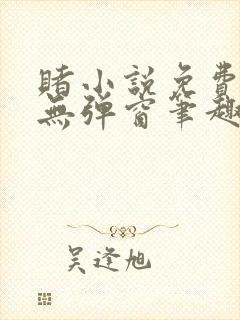 賭小説免費
無彈窗筆趣
吴逢旭